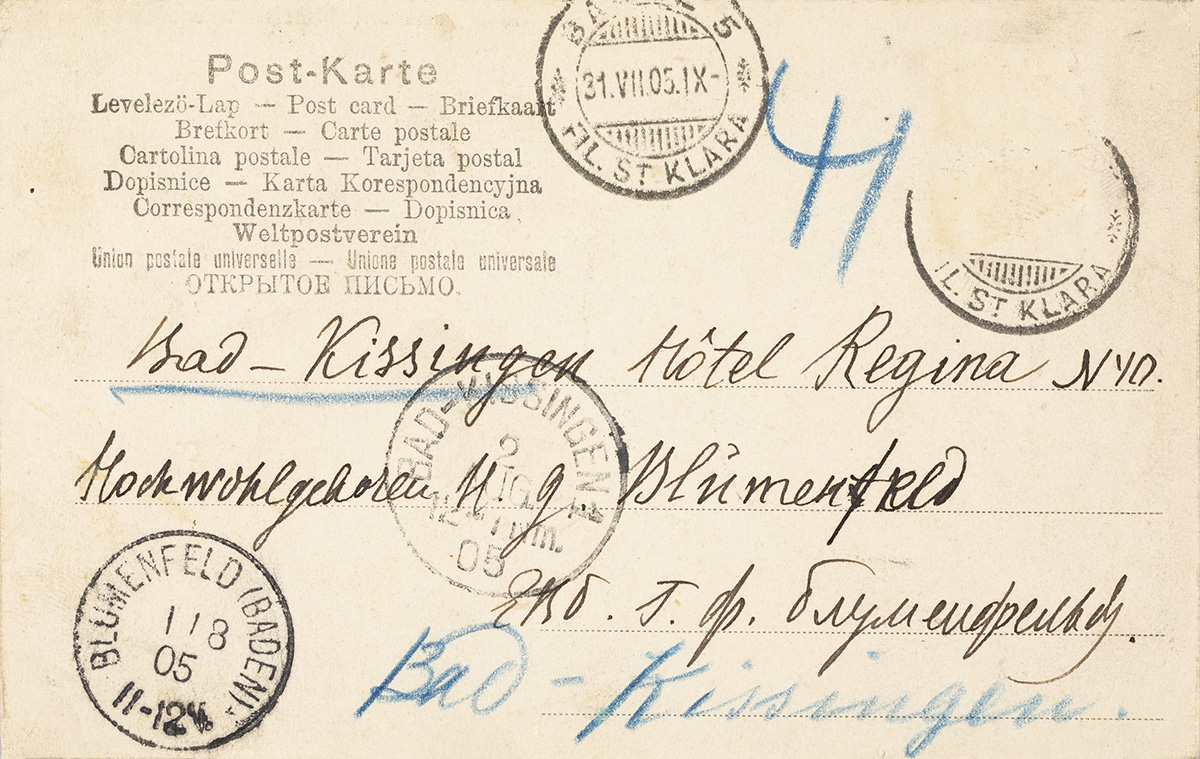 Post-Karte
Levelezö-Lap — Post card — Briefkaart
Brefkort — Carte postale
Cartolina postale — Tarjeta postal
Dopisnice — Karta Korespondencyjna
Correspondenzkarte — Dopisnica
Weltpostverein
Union postale universelle — Unione postale universale
ОТКРЫТОЕ ПИСЬМО.
5
31.VII.05.IX-
FIL. ST KLARA
4
IL. ST KLARA
Bad-Kissingen Hôtel Regina N 40.
Hochwohlgeboren H g Blümenfeld
BAD-KISSINGEN 1
2
05
Г. Ф. Блуменфельдъ.
BLUMENFELD (BADEN)
1 8
05
11-12V.
Bad-Kissingen.